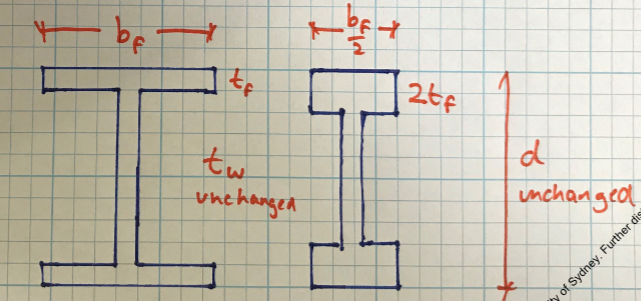 b_f
b_f/2
t_f
2t_f
t_w
unchanged
d
unchanged
ty of Sydney. Further dis